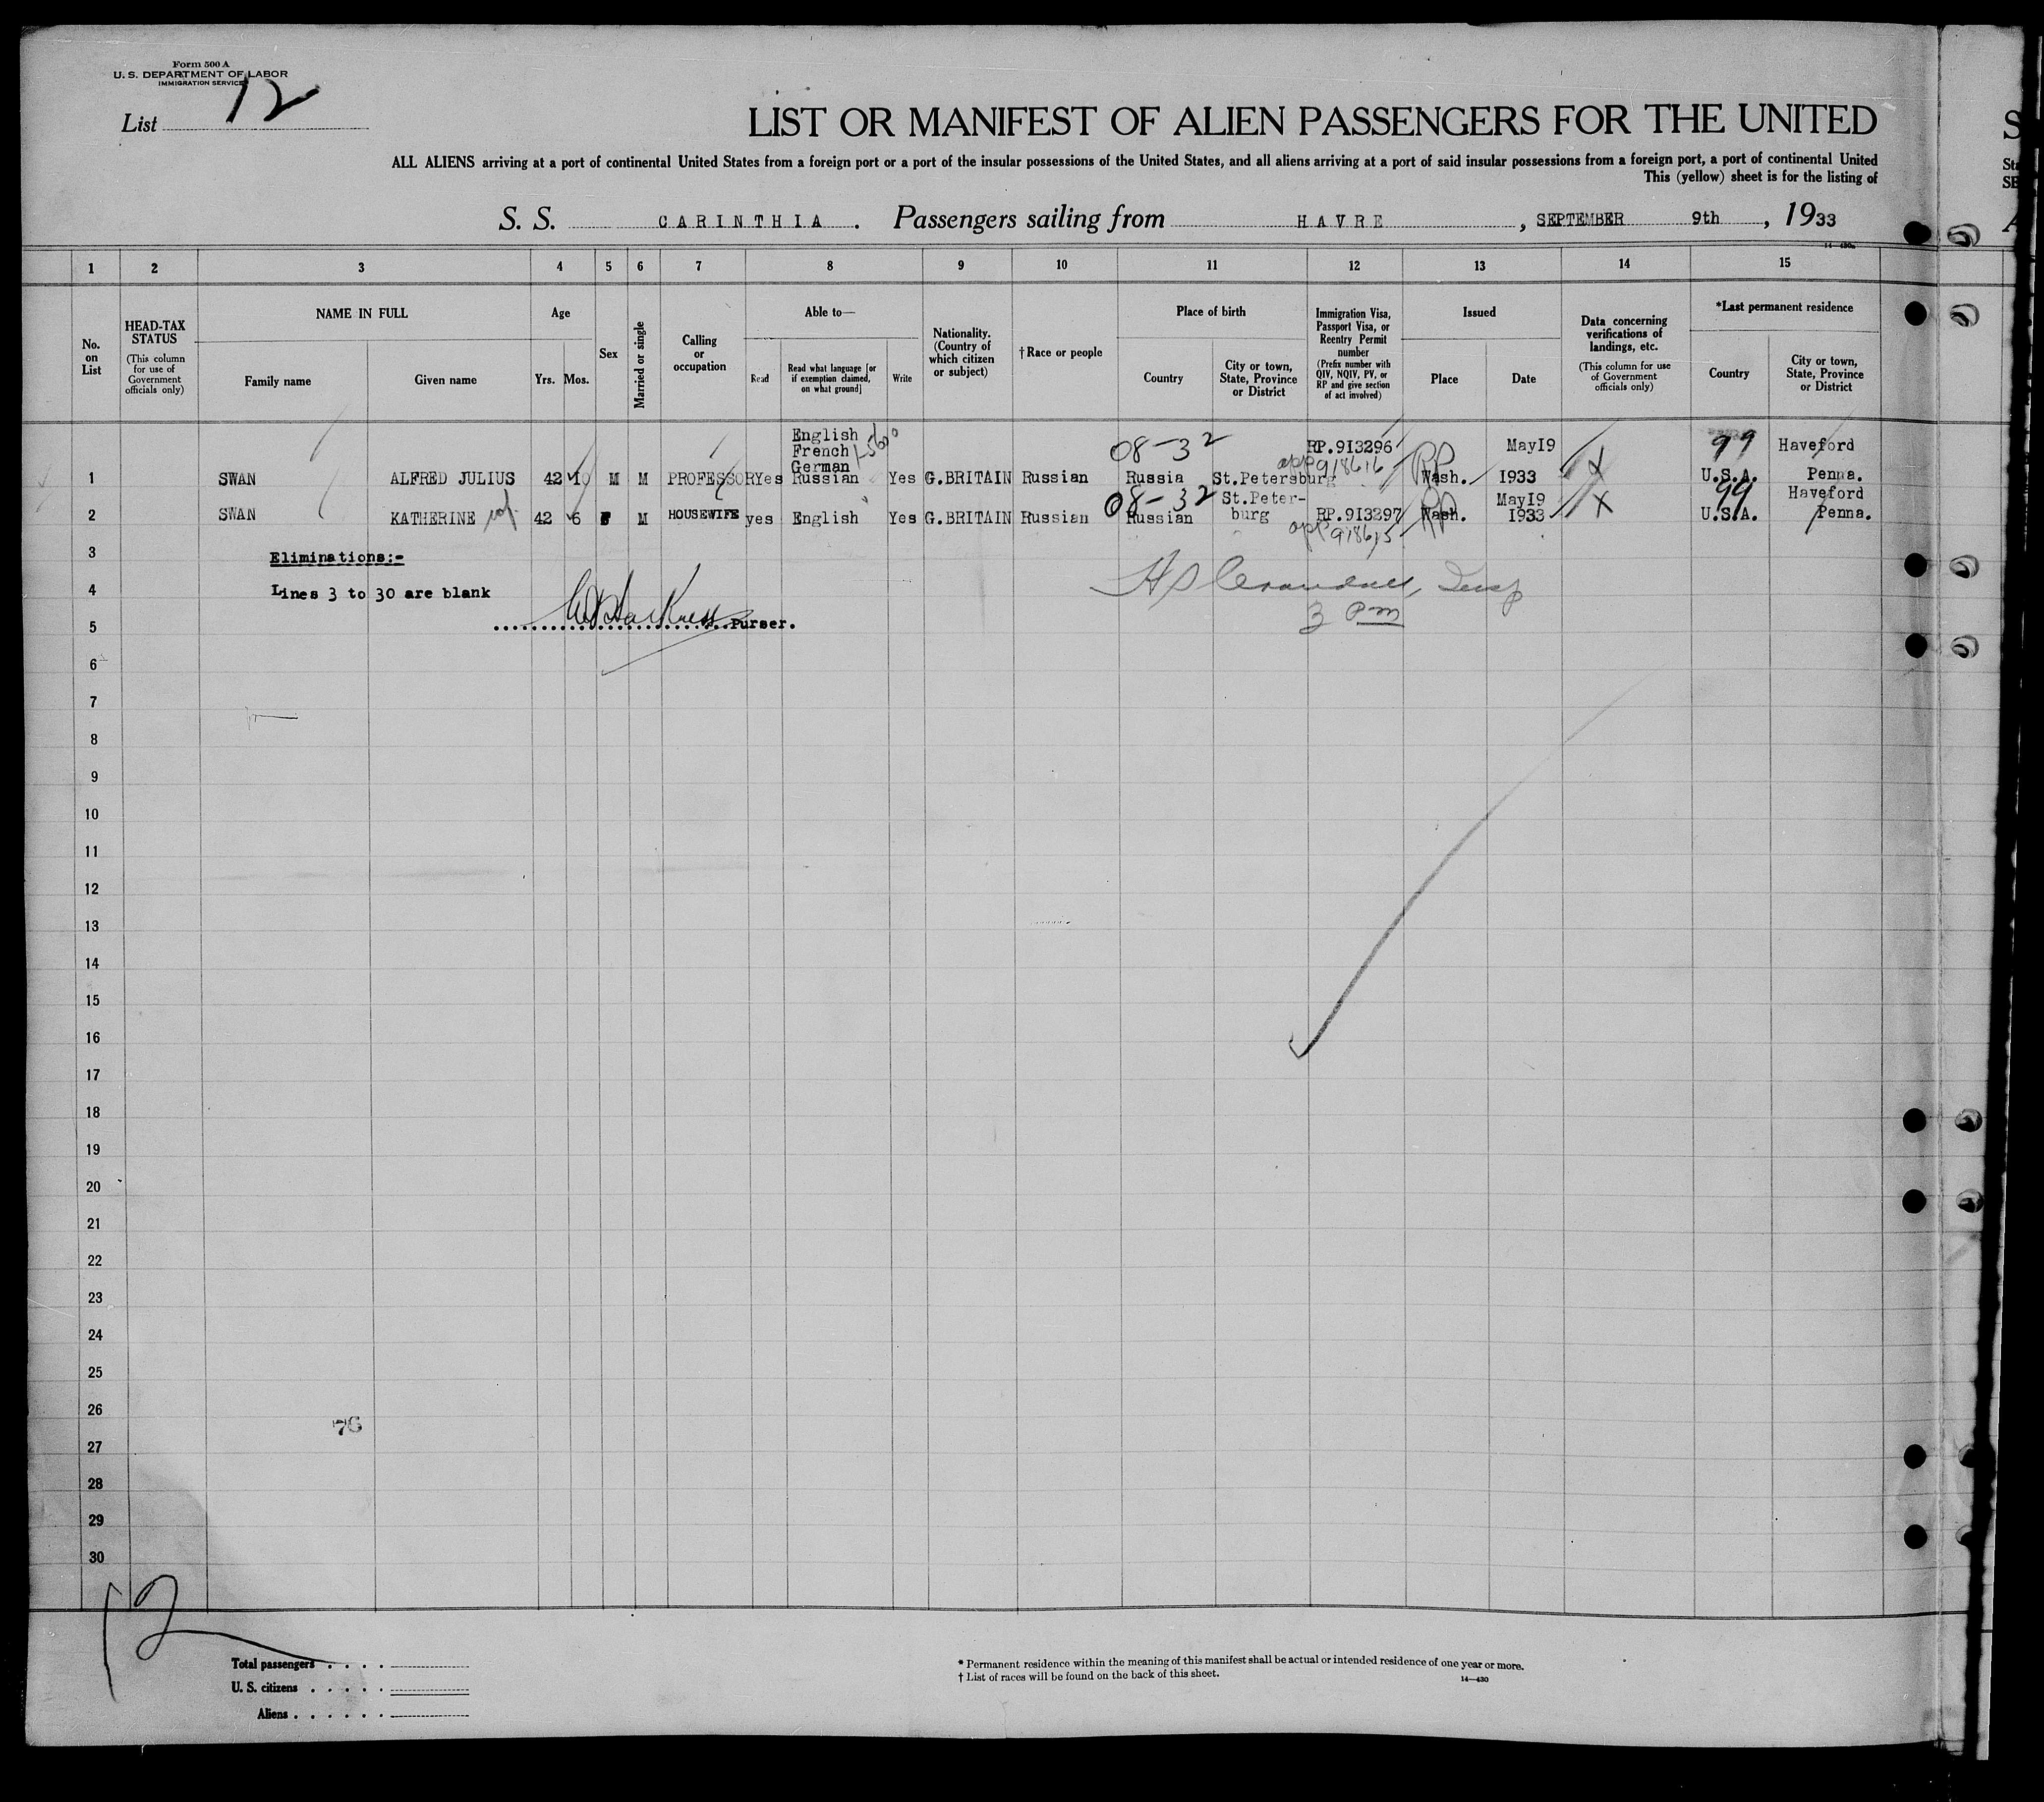 Form 500 A
U. S. DEPARTMENT OF LABOR
IMMIGRATION SERVICE
List 12
LIST OR MANIFEST OF ALIEN PASSENGERS FOR THE UNITED
ALL ALIENS arriving at a port of continental United States from a foreign port or a port of the insular possessions of the United States, and all aliens arriving at a port of said insular possessions from a foreign port, a port of continental United
This (yellow) sheet is for the listing of
S. S. CARINTHIA. Passengers sailing from HAVRE, SEPTEMBER 9th, 1933
14—430a
1 2 3 4 5 6 7 8 9 10 11 12 13 14 15
No. on List
HEAD-TAX STATUS
(This column for use of Government officials only)
NAME IN FULL
Family name Given name
Age
Yrs. Mos.
Sex
Married or single
Calling or occupation
Able to—
Read
Read what language [or if exemption claimed, on what ground]
Write
Nationality. (Country of which citizen or subject)
†Race or people
Place of birth
Country
City or town, State, Province or District
Immigration Visa, Passport Visa, or Reentry Permit number
(Prefix number with QIV, NQIV, PV, or RP and give section of act involved)
Issued
Place Date
Data concerning verifications of landings, etc.
(This column for use of Government officials only)
*Last permanent residence
Country
City or town, State, Province or District
English 08-32 RP.913296 May19 99 Haveford
French
German app 918616 RP
1 SWAN ALFRED JULIUS 42 10 M M PROFESSOR Yes Russian Yes G.BRITAIN Russian Russia St.Petersburg Wash. 1933 X U.S.A. Penna.
08-32 St.Peter- RP May19 99 Haveford
2 SWAN KATHERINE 42 6 F M HOUSEWIFE yes English Yes G.BRITAIN Russian Russian burg RP.913297 Wash. 1933 X U.S.A. Penna.
app 918615
3 Eliminations:-
4 Lines 3 to 30 are blank
Crandall, Insp
3 PM
5 Purser.
6
7
8
9
10
11
12
13
14
15
16
17
18
19
20
21
22
23
24
25
26
76
27
28
29
30
12
Total passengers
U. S. citizens
Aliens
* Permanent residence within the meaning of this manifest shall be actual or intended residence of one year or more.
† List of races will be found on the back of this sheet.
14—430